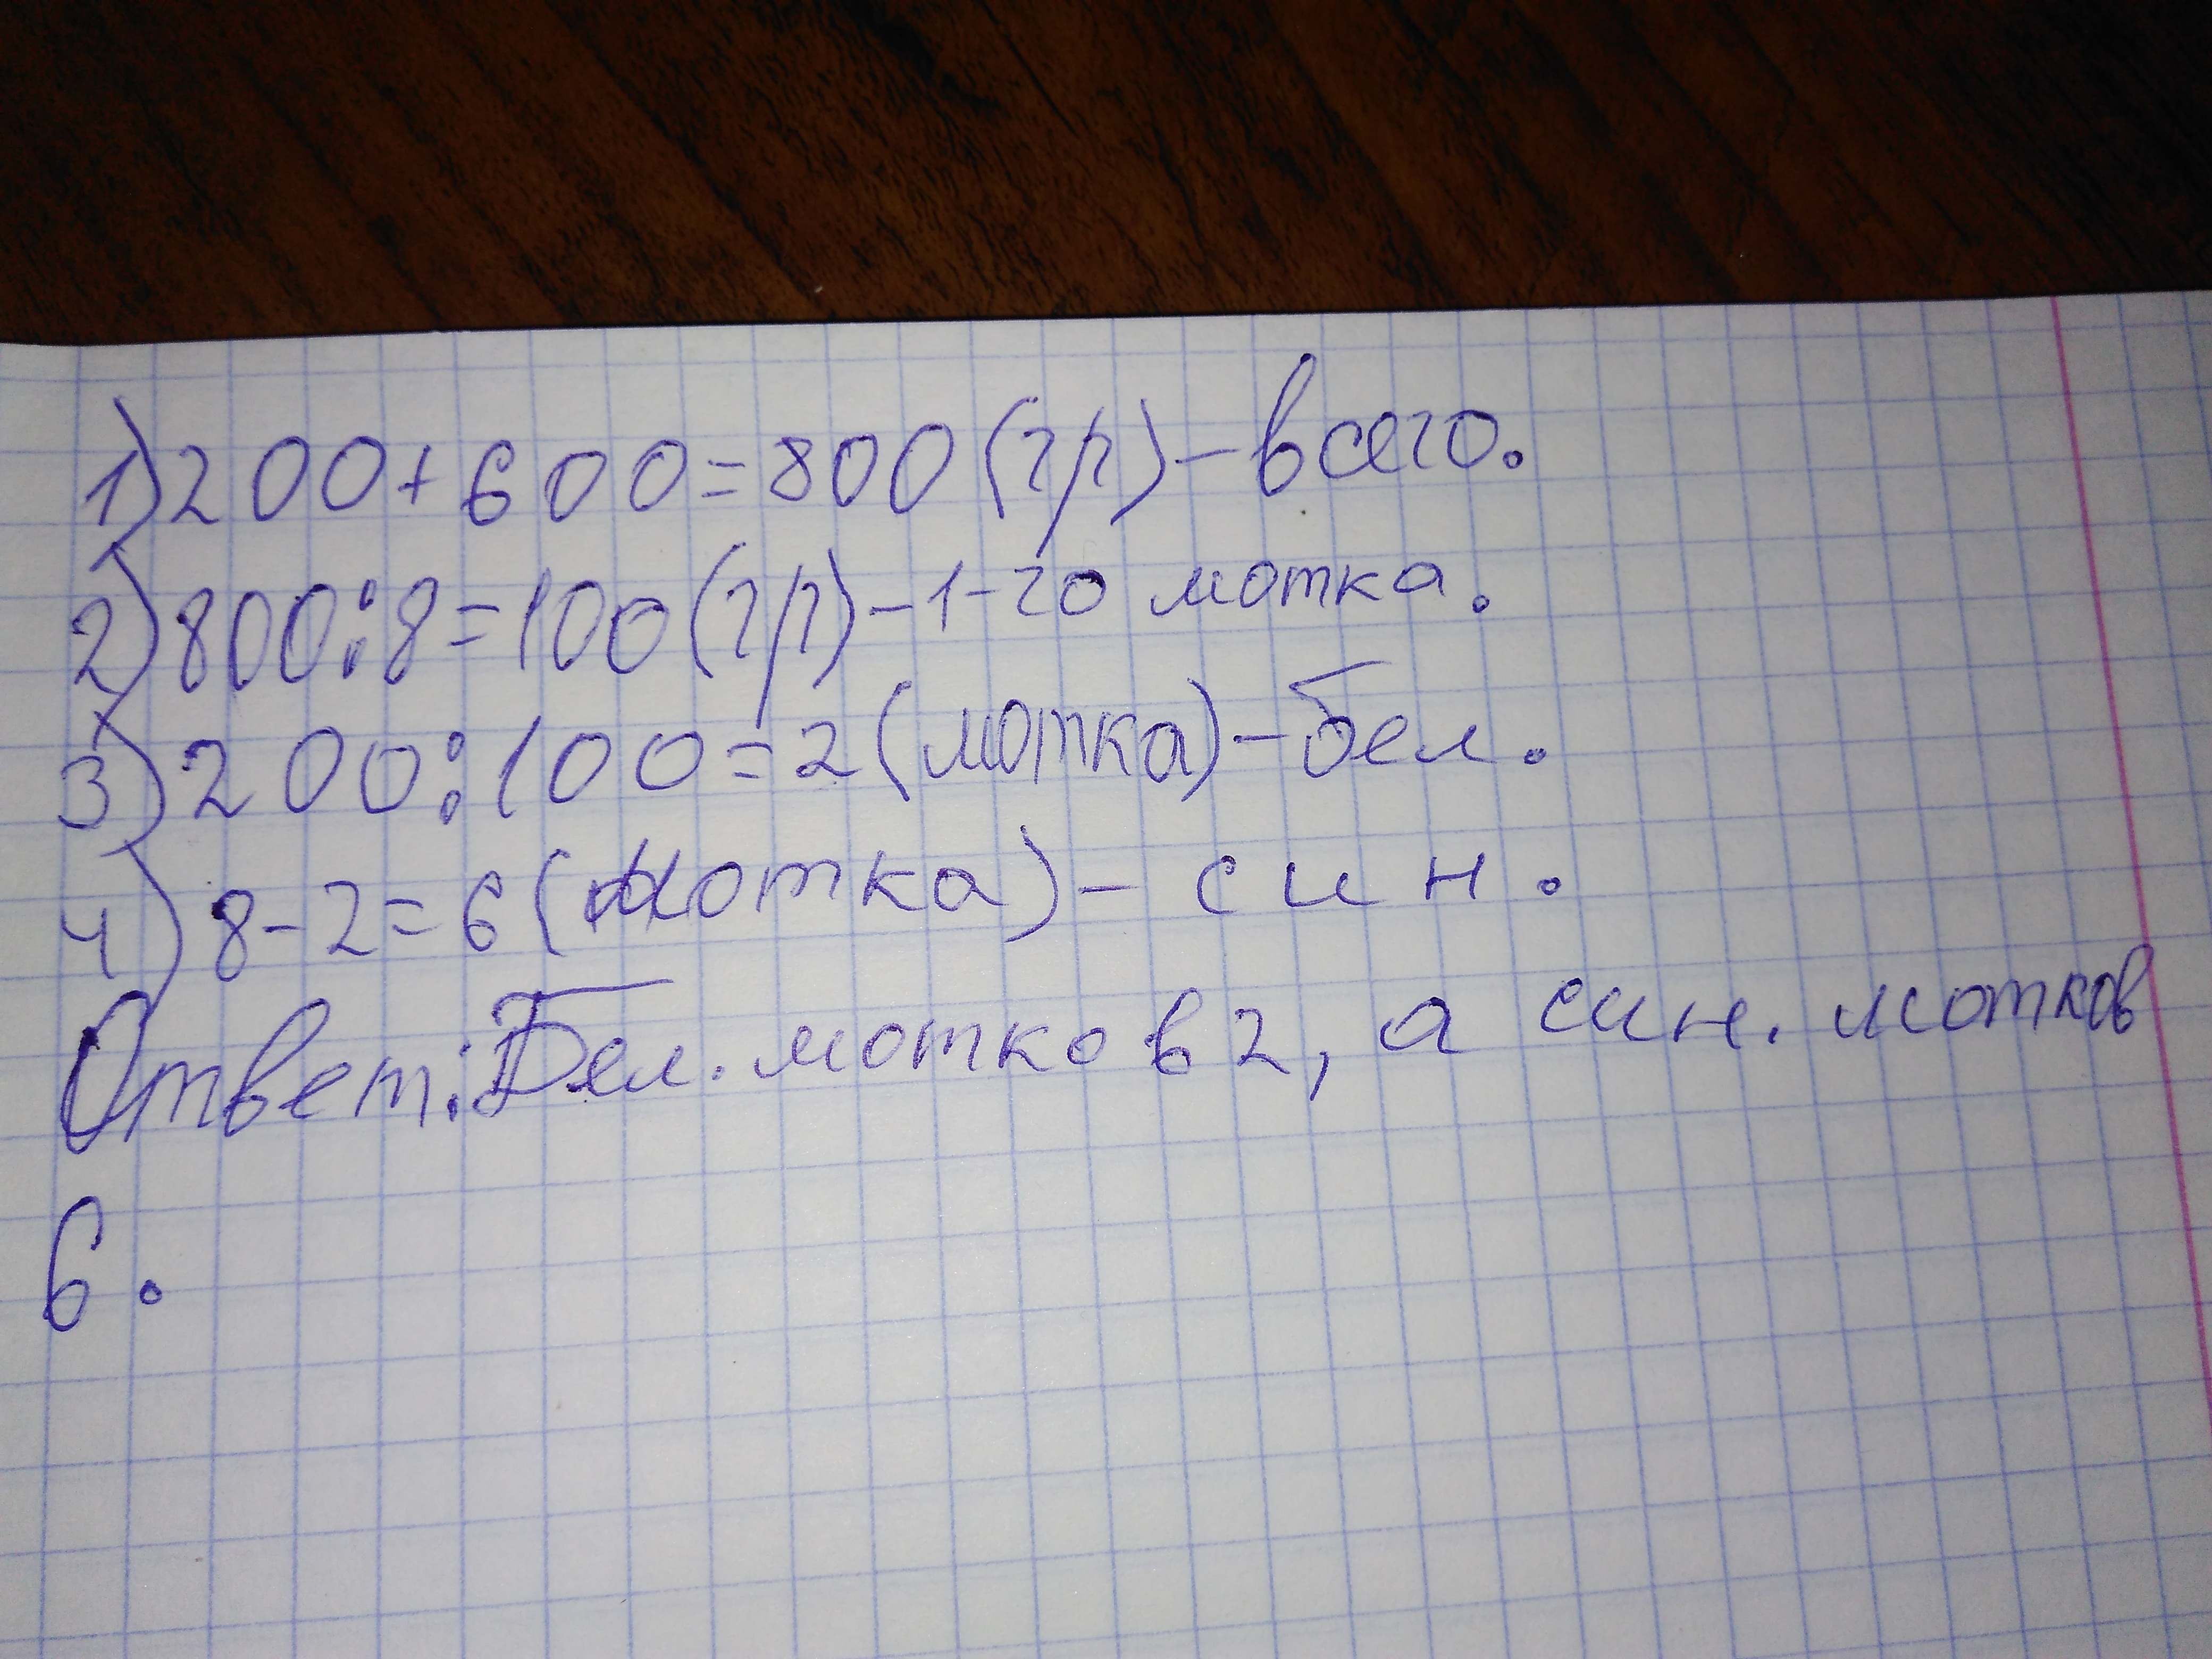 1) 200+600=800(гр)-всего.
2) 800:8=100(гр)-1-го мотка.
3) 200:100=2(мотка)-бел.
4) 8-2=6(мотка)-син.
Ответ: Бел. мотков 2, а син. мотков
6.